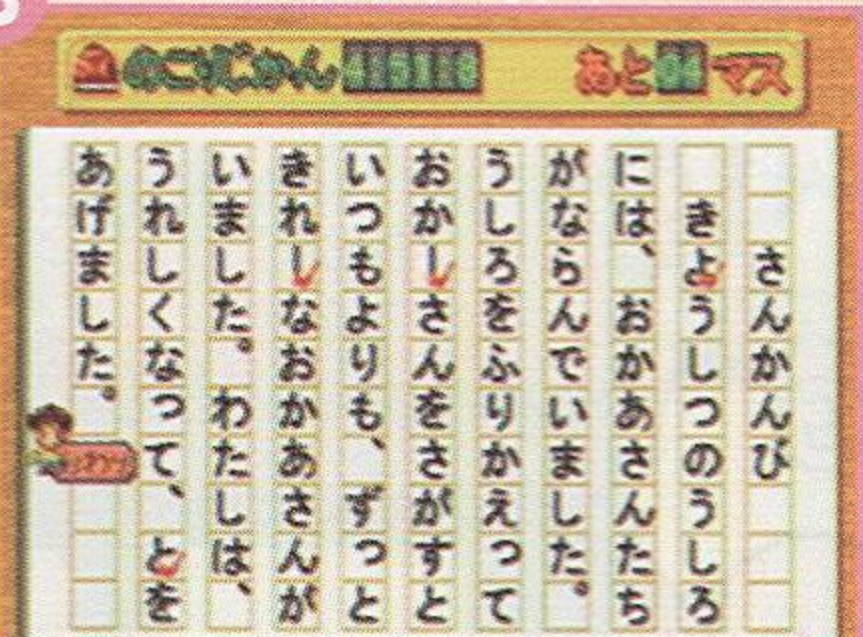 のこりじかん
あと
マス
さんかんび
きようしつのうしろ
には、おかあさんたち
がならんでいました。
うしろをふりかえって
おかしさんをさがすと
いつもよりも、ずっと
きれしなおかあさんが
いました。わたしは、
うれしくなって、とを
あげました。